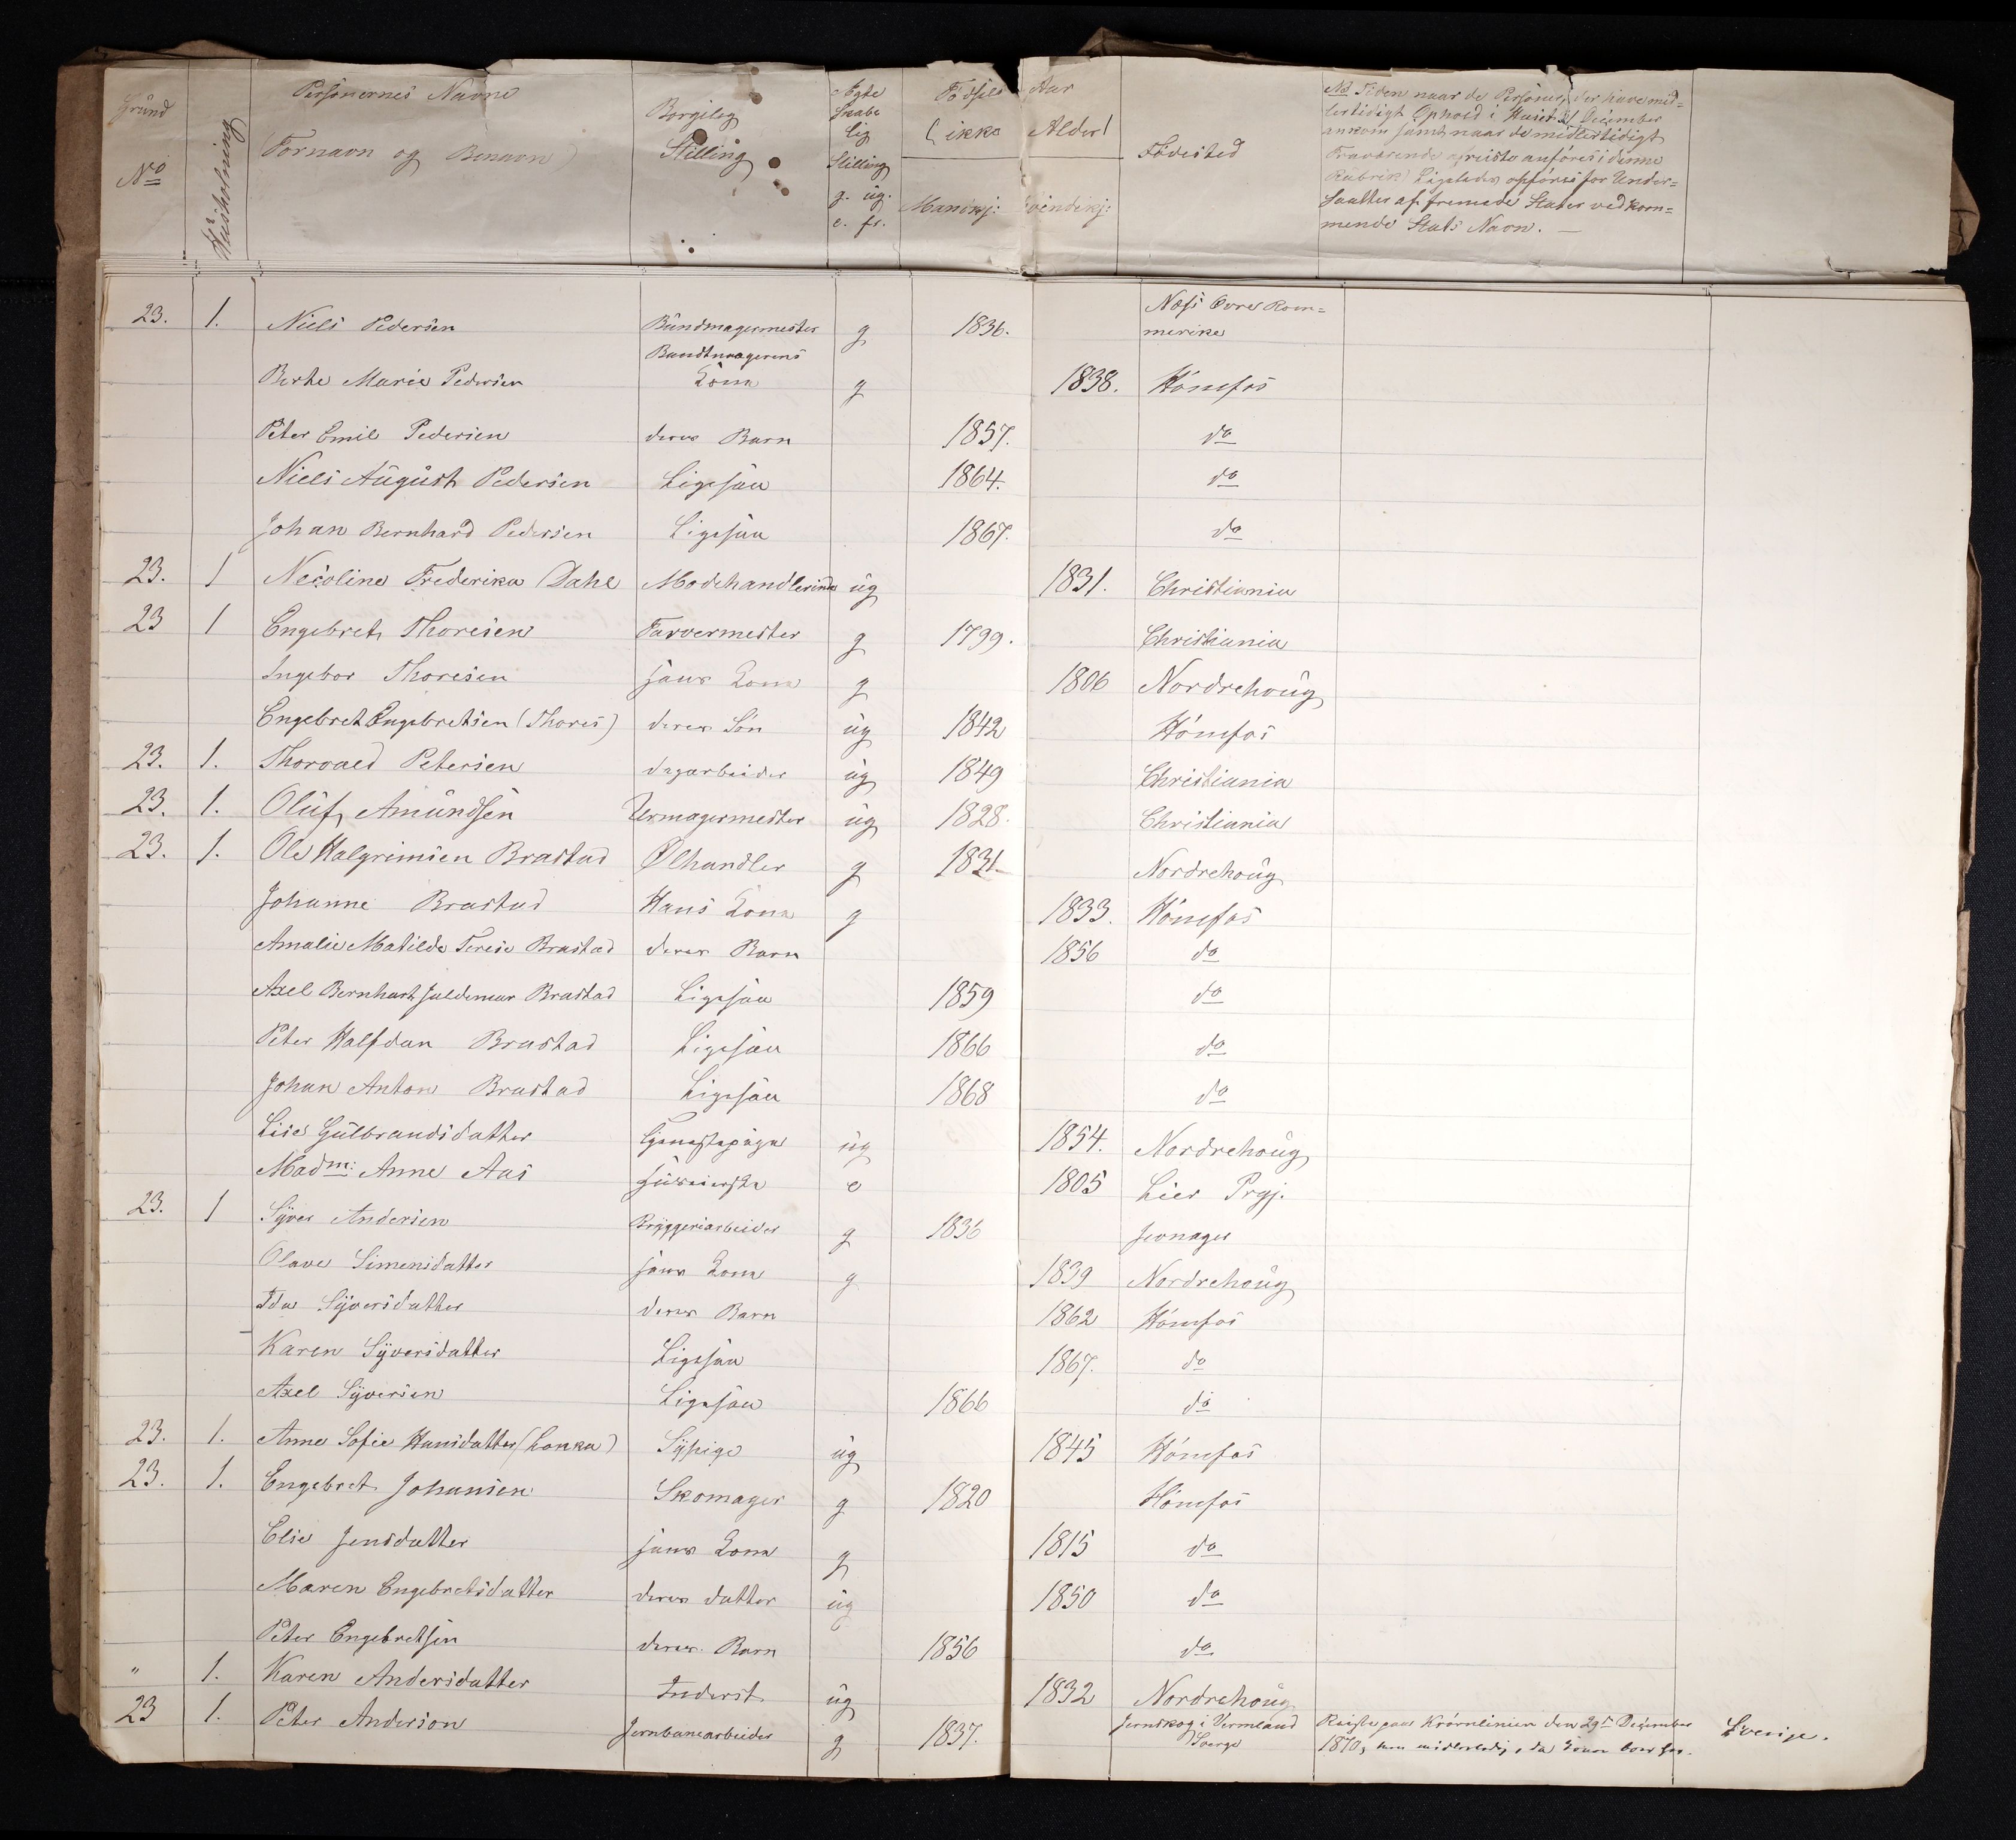 Gründ No
Huusholning
Personernes Navne (Fornavn og Benavn)
Borgileg Stilling
Ægte Skabe lig Stilling g. üg. e. fr.
Födsels Aar (ikke Alder)
Mandkj: Qvindekj:
Födested
NB Tiden naar de Personer, der have mid=
lertidigt Ophold i Huset 31 December
ankom samt naar de midlertidigt
Fraværende afreiste anföres i denne
Rubrik. Ligeledes opföres for Under=
saatter af fremede Stater vedkom=
mende Stats Navn. —
23. 1. Niels Pedersen Bündmagermester g 1836. Næss Övre Rom=
merike
Berthe Marie Pedersen Bundtmagerens Kone g 1838. Hönefos
Peter Emil Pedersen deres Barn 1857. do
Niels Aügüst Pedersen Ligesaa 1864. do
Johan Bernhard Pedersen Ligesaa 1867. do
23. 1 Nicoline Frederika Dahl Modehandlerinde üg 1831. Christiania
23 1 Engebret Thoresen Farvermester g 1799. Christiania
Ingebor Thoresen hans Kone g 1806 Nordrehoüg
Engebret Engebretsen (Thores) deres Sön üg 1842 Hönefos
23. 1. Thorvald Petersen dagarbeider üg 1849 Christiania
23. 1. Olüf Amündsen Urmagermester üg 1828. Christiania
23. 1. Ole Halgrimsen Brastad Ølhandler g 1831. Nordrehoüg
Johanne Brastad Hans Kone g 1833. Hönefos
Amalie Matilde Terese Brastad deres Barn 1856 do
Axel Bernhart Brastad Ligesaa 1859 do
Peter Halfdan Brastad Ligesaa 1866 do
Johan Anton Brastad Ligesaa 1868 do
Lise Gülbrandsdatter Tjenestepige üg 1854. Nordrehoüg
Madm: Anne Aas e 1805 Lier Prgj.
23. 1 Syver Andersen Bryggeriarbeider g 1836 Jevnager
Olave Simensdatter hans Kone g 1839 Nordrehoüg
Ida Syversdatter deres Barn 1862 Hönefos
Karen Syversdatter Ligesaa 1867. do
Axel Syversen Ligesaa 1866 do
23. 1. Anne Sofie Hansdatter (Lonka) Sypige üg 1845 Hönefos
23. 1. Engebret Johansen Skomager g 1820 Hönefos
Elise Jensdatter hans Kone g 1815 do
Maren Engebretsdatter deres datter üg 1850 do
Peter Engebretsen deres Barn 1856 do
" 1. Karen Andersdatter Inderst üg 1832 Nordrehoüg
23 1. Peter Anderson Jernbanearbeider g 1837. Jernskog i Vermland Reiste paa Krörnlinien den 29de December Sverige.
Sverge 1870, kun midlertidig, da Konen boer her.